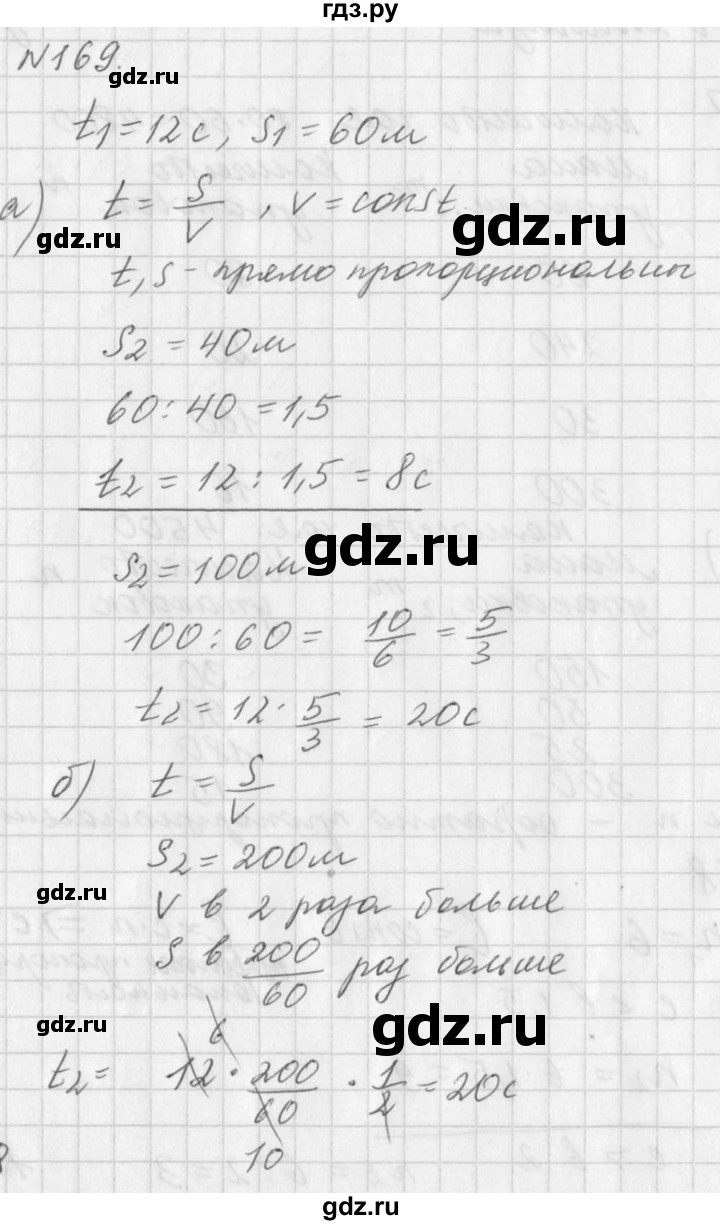 гдз.ру
№169.
gdz.ru
t₁ = 12с, S₁ = 60м
а) t = S/V, V = const
gdz.ru
t, S - прямо пропорциональны
S₂ = 40м
60 : 40 = 1,5
t₂ = 12 : 1,5 = 8с
gdz.ru
S₂ = 100м
100 : 60 = 10/6 = 5/3
t₂ = 12 · 5/3 = 20с
б) t = S/V
S₂ = 200м
gdz.ru
V в 2 раза больше
S в 200/60 раз больше
gdz.ru
gdz.ru
6
t₂ = 12 · 200/60 · 1/2 = 20с
10
gdz.ru
gdz.ru